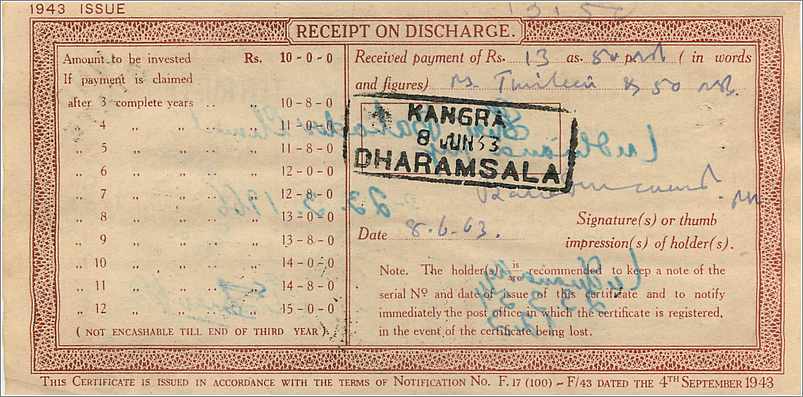 1943 ISSUE
13.50
RECEIPT ON DISCHARGE.
Amount to be invested Rs. 10-0-0
If payment is claimed
after 3 complete years .. .. 10-8-0
" 4 " " " " 11-0-0
" 5 " " " " 11-8-0
" 6 " " " " 12-0-0
" 7 " " " " 12-8-0
" 8 " " " " 13-0-0
" 9 " " " " 13-8-0
" 10 " " " " 14-0-0
" 11 " " " " 14-8-0
" 12 " " " " 15-0-0
( NOT ENCASHABLE TILL END OF THIRD YEAR ).
Received payment of Rs. 13 as. 50 ( in words
and figures) Rs. Thirteen & 50
KANGRA
8 JUN 63
DHARAMSALA
Date 8.6.63.
Signature(s) or thumb
impression(s) of holder(s).
Note. The holder(s) is/are recommended to keep a note of the
serial No and date of issue of this certificate and to notify
immediately the post office in which the certificate is registered,
in the event of the certificate being lost.
THIS CERTIFICATE IS ISSUED IN ACCORDANCE WITH THE TERMS OF NOTIFICATION NO. F. 17 (100) - F/43 DATED THE 4TH SEPTEMBER 1943